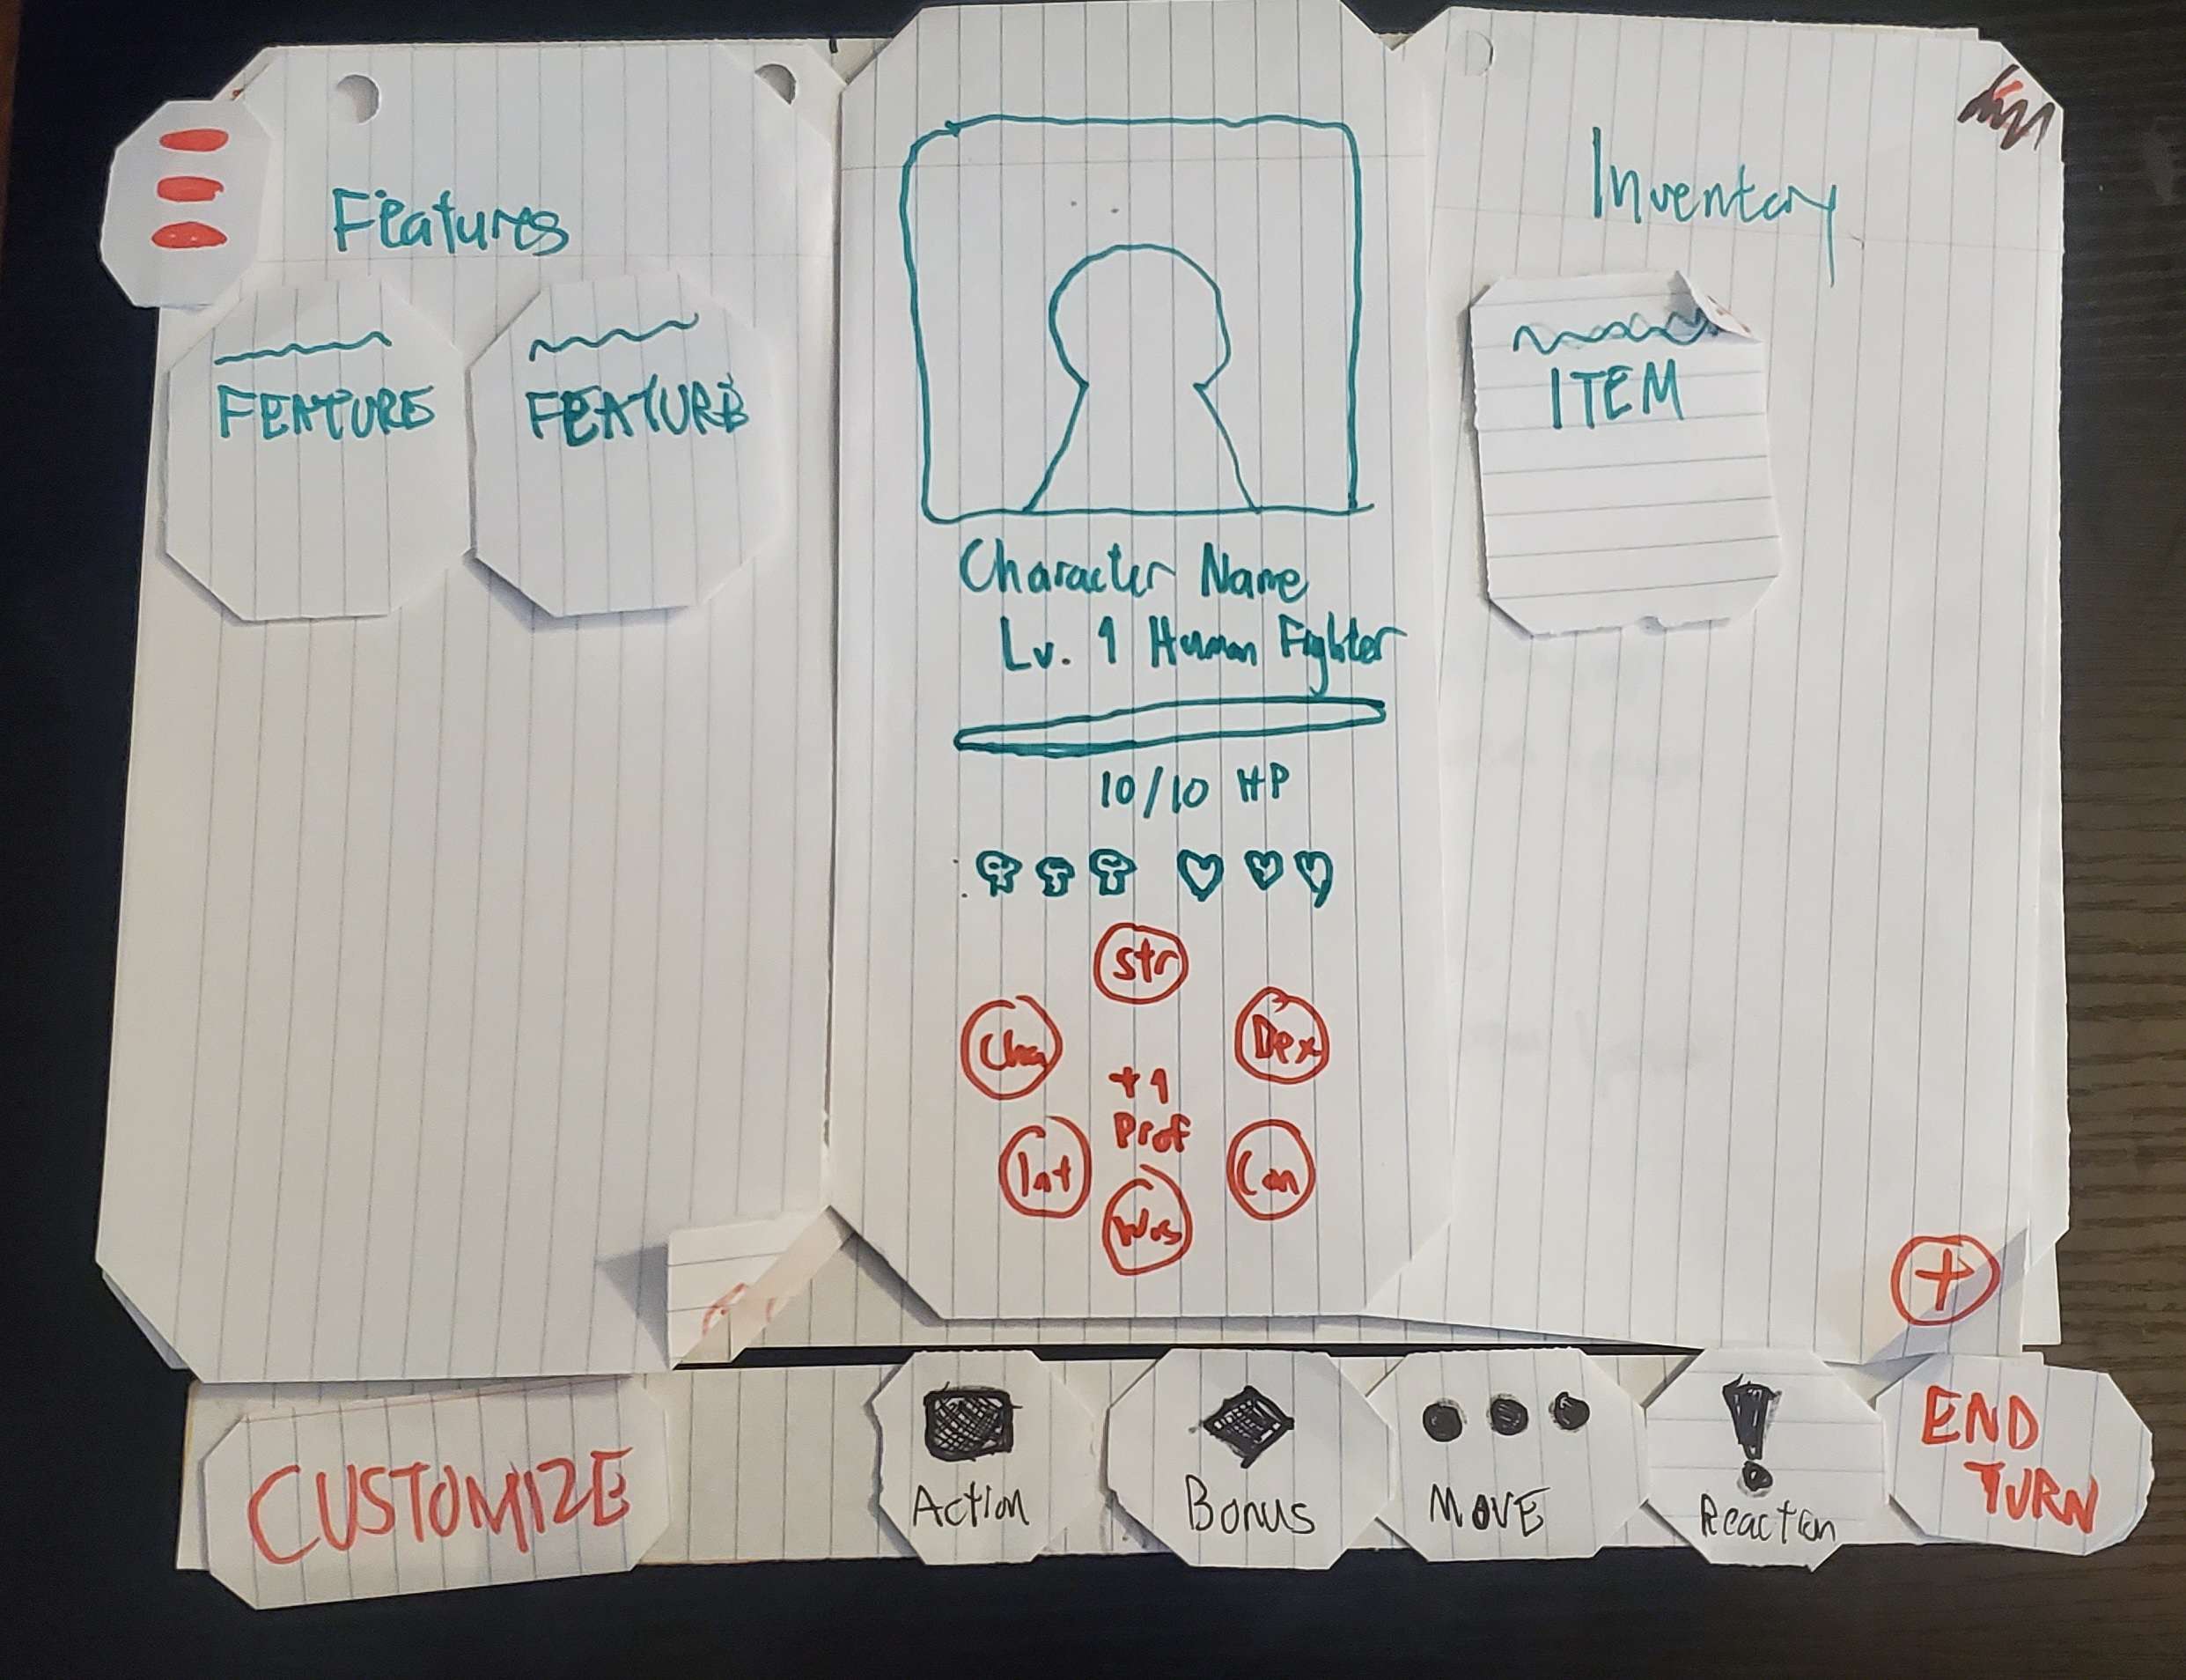 Features
FEATURE
FEATURE
Character Name
Lv. 1 Human Fighter
10/10 HP
Str
Dex
Con
Wis
Int
Cha
+1
Prof
Inventory
ITEM
+
CUSTOMIZE
Action
Bonus
MOVE
Reaction
END
TURN